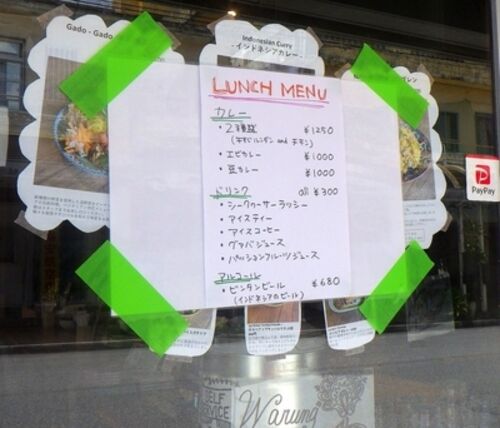 Gado - Gado
Indonesian Curry
-インドネシアカレー-
LUNCH MENU
カレー
・2種盛 ¥1250
(牛すじルンダン and チキン)
・エビカレー ¥1000
・豆カレー ¥1000
ドリンク all ¥300
・シークヮーサーラッシー
・アイスティー
・アイスコーヒー
・グァバジュース
・パッションフルーツジュース
アルコール
・ビンタンビール ¥680
(インドネシアのビール)
PayPay
SELF
SERVICE
Warung